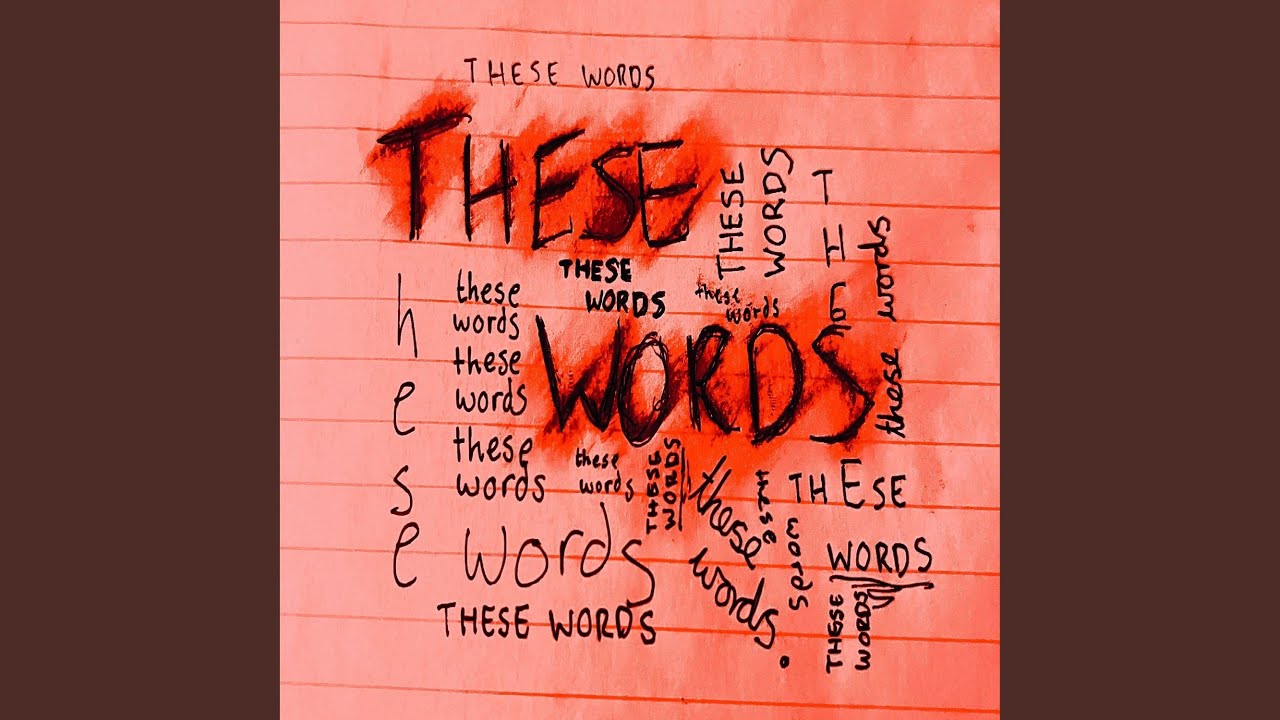 THESE WORDS
THESE
THESE
WORDS
THESE
WORDS
these
words
WORDS
these
words
these
words
these
words
these
words
THESE
WORDS
these
words.
these
words
THESE
WORDS
THESE
WORDS
these words
hese words
THESE WORDS